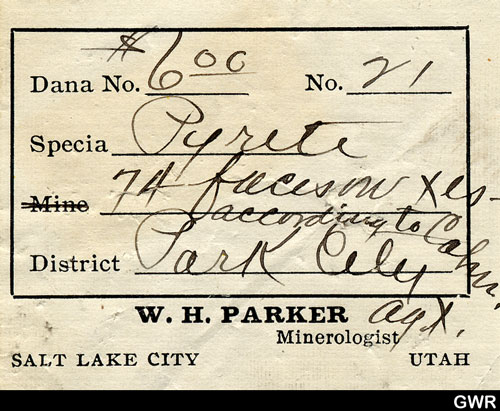 Dana No. $6.00 No. 21
Specia Pyrite
Mine 74 faces on xls-
according to Cahn,
District Park City
agt.
W. H. PARKER
Minerologist
SALT LAKE CITY UTAH
GWR